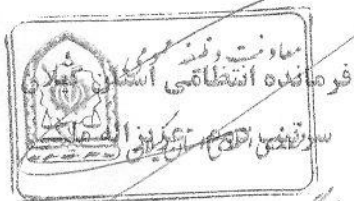 معاونت وظیفه عمومی
فرمانده انتظامی استان گیلان
سرتیپ دوم عزیزاله ملکی